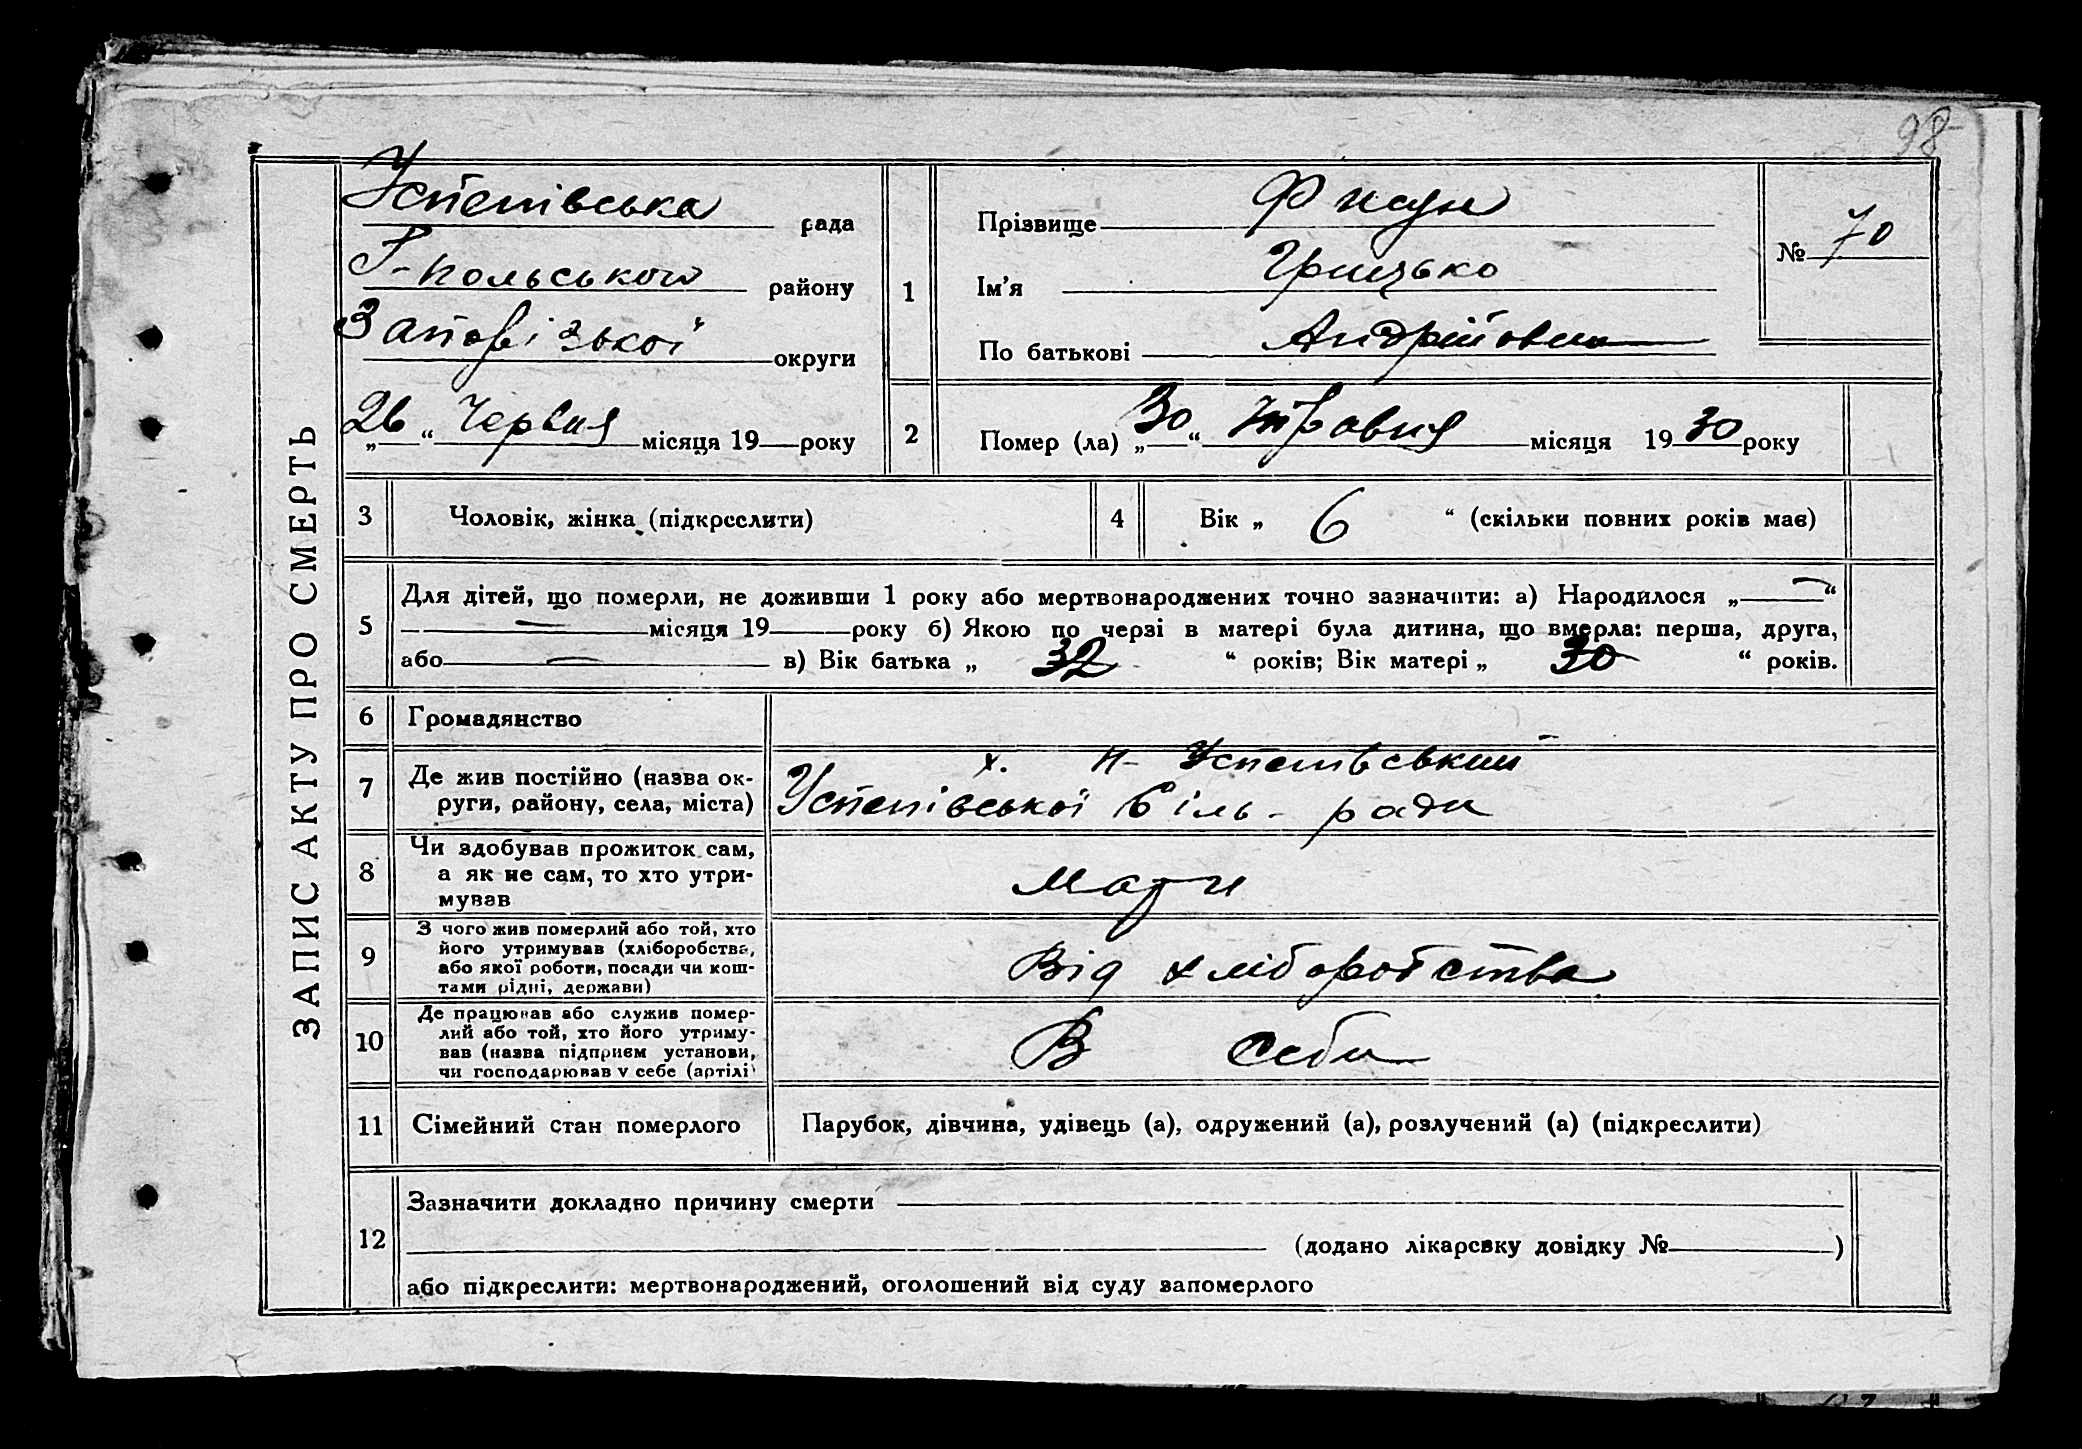 98
ЗАПИС АКТУ ПРО СМЕРТЬ
Успенівська рада
Г-польського району
Запорізької округи
„26“ Червня місяця 19 року
1
Прізвище Фисун
Ім'я Грицько
По батькові Андрійович
№ 70
2
Помер (ла) „30“ травня місяця 1930 року
3 Чоловік, жінка (підкреслити)
4 Вік „ 6 “ (скільки повних років має)
5
Для дітей, що померли, не доживши 1 року або мертвонароджених точно зазначити: а) Народилося „ — “
— місяця 19 року б) Якою по черзі в матері була дитина, що вмерла: перша, друга,
або — в) Вік батька „ 32 “ років; Вік матері „ 30 “ років.
6 Громадянство
7 Де жив постійно (назва ок-
руги, району, села, міста)
х. Н-Успенівський
Успенівської сіль-ради
8 Чи здобував прожиток сам,
а як не сам, то хто утри-
мував
Мати
9 З чого жив померлий або той, хто
його утримував (хліборобства,
або якої роботи, посади чи кош-
тами рідні, держави)
Від хліборобства
10 Де працював або служив помер-
лий або той, хто його утриму-
вав (назва підприєм установи,
чи господарював у себе (артілі)
В себе
11 Сімейний стан померлого
Парубок, дівчина, удівець (а), одружений (а), розлучений (а) (підкреслити)
12
Зазначити докладно причину смерти
(додано лікарську довідку № )
або підкреслити: мертвонароджений, оголошений від суду запомерлого